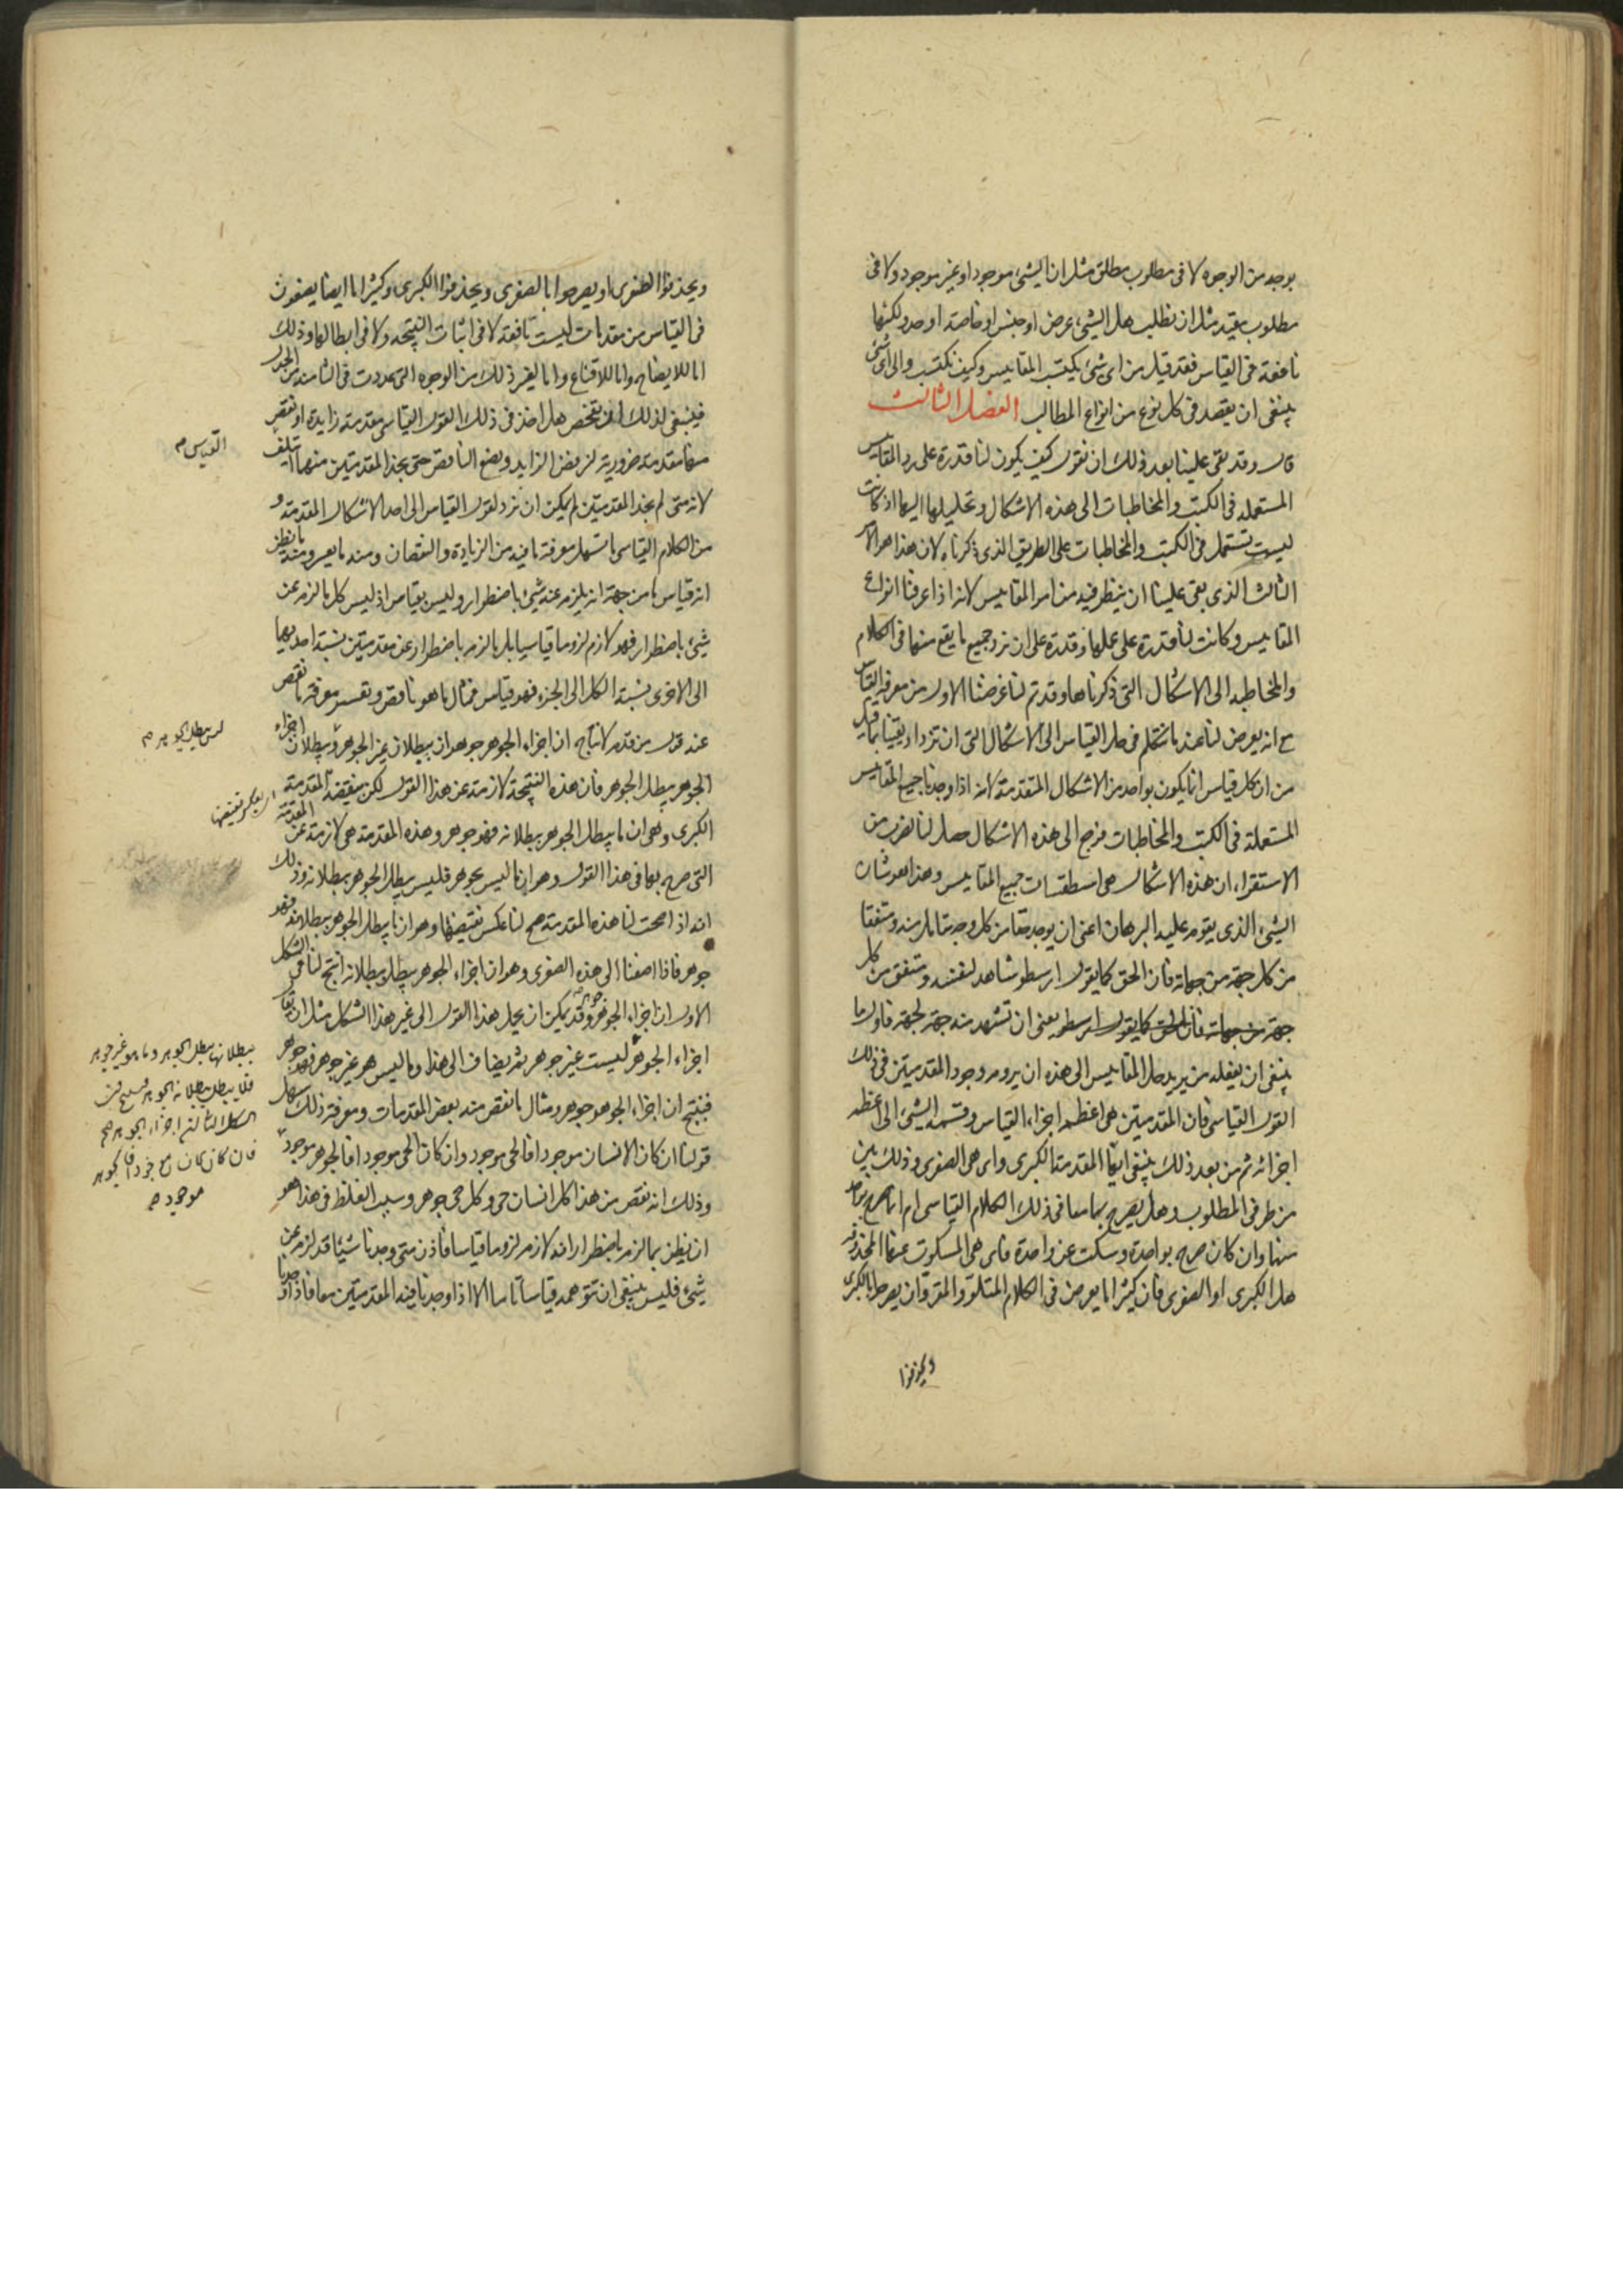 بوجه من الوجوه لا فى مطلوب مطلق مثل ان الشىء موجود او غير موجود ولا فى
مطلوب مقيد مثل ان نطلب هل الشىء عرض او جنس او خاصة او حد ولكنها
نافعة فى القياس فقد قيل من اى شىء يكتسب المقاييس وكيف تكتسب والى اى شىء
ينبغى ان يقصد فى كل نوع من انواع المطالب الفصل الثالث
قال وقد بقى علينا بعد ذلك ان نقول كيف يكون لنا قدرة على رد المقاييس
المستعملة فى الكتب والمخاطبات الى هذه الاشكال وتحليلها اليها اذ كانت
ليست تستعمل فى الكتب والمخاطبات على الطريق الذى ذكرناه لان هذا هو الامر
الثالث الذى بقى علينا ان ينظر فيه من امر المقاييس لانه اذا عرفنا انواع
المقاييس وكانت لنا قدرة على عملها وقدرة على ان نرد جميع ما يقع منها فى الكلام
والمخاطبة الى الاشكال التى ذكرناها وقد تم لنا غرضنا الاول من معرفة القياس
مع انه يعرض لنا عند ما نتكلم فى حل القياس الى الاشكال التى ان نزداد يقينا بما قيل
من ان كل قياس انما يكون بواحد من الاشكال المتقدمة لانه اذا وجدنا جميع المقاييس
المستعملة فى الكتب والمخاطبات ترجع الى هذه الاشكال حصل لنا بضرب من
الاستقراء ان هذه الاشكال هى اسطقسات جميع المقاييس وهذا هو شان
الشىء الذى يقوم عليه البرهان اعنى ان يوجد حقا من كل وجه يتامل منه ومتفقا
من كل جهة من جهاته فان الحق كما يقول ارسطو شاهد لنفسه ومتفق من كل
جهة من جهاته فان الحق كما يقول ارسطو يعنى ان تشهد منه جهة لجهة فاول ما
ينبغى ان يفعله من يريد حل المقاييس الى هذه ان يروم وجود المقدمتين فى ذلك
القول القياسى فان المقدمتين هى اعظم اجزاء القياس وقسمة الشىء الى اعظم
اجزائه ثم من بعد ذلك ينبغى ايما المقدمة الكبرى واى هى الصغرى وذلك بين
من طرفى المطلوب وهل يصرح بهما معا فى ذلك الكلام القياسى ام انما صرح بواحدة
منها وان كان صرح بواحدة وسكت عن واحدة فاى هى المسكوت عنها المحذوفة
هل الكبرى او الصغرى فان كثيرا ما يعرض فى الكلام المتلو والمقروان يصرحوا بالكبرى
ويحذفوا
ويحذفوا الصغرى او يصرحوا بالصغرى ويحذفوا الكبرى وكثيرا ما ايضا يضعون
فى القياس من مقدمات ليست نافعة لا فى اثبات النتيجة ولا فى ابطالها وذلك
اما للايضاح واما للاقناع واما لغير ذلك من الوجوه التى عددت فى الثامنة من الجدل
فينبغى لذلك ان نفحص هل اخذ فى ذلك القول القياسى مقدمة زايدة او نقص
منها مقدمة ضرورية لنرفض الزايد ونضع الناقص حتى نجد المقدمتين منها ايتلف
القياس صح
لانه متى لم نجد المقدمتين لم يمكن ان نرد القول القياسى الى احد الاشكال المتقدمة و
من الكلام القياسى ما تسهل معرفة ما فيه من الزيادة والنقصان ومنه ما يعسر ومنه ما نظن
انه قياس ما من جهة انه يلزم عنه شىء باضطرار وليس بقياس اذ ليس كل ما لزم عن
شىء باضطرار فهو لازم لزوما قياسيا بل ما لزم باضطرار عن مقدمتين نسبة احديهما
الى الاخرى نسبة الكل الى الجزء فهو قياس فمثال ما هو ناقص وتعسر معرفة ما نقص
عنه قول من قدم لانتاج ان اجزاء الجوهر جوهر ان ببطلان غير الجوهر وببطلان اجزاء
ليس يبطل الجوهر صح
الجوهر يبطل الجوهر فان هذه النتيجة لازمة عن هذا القول لكن ينقصه المقدمة
الكبرى وهى ان ما يبطل الجوهر ببطلانه فهو جوهر وهذه المقدمة هى لازمة عن المقدمة
التى صرح بها فى هذا القول وهو ان ما ليس بجوهر فليس يبطل الجوهر ببطلانه وذلك
انه اذا صحت لنا هذه المقدمة صح لنا عكس نقيضها وهو ان ما يبطل الجوهر ببطلانه فهو
جوهر فاذا اضفنا الى هذه الصغرى وهو ان اجزاء الجوهر يبطل ببطلانه انتج لنا فى الشكل
الاول ان اجزاء الجوهر جوهر وقد يمكن ان يحل هذا القول الى غير هذا الشكل مثل ان يقال
اجزاء الجوهر ليست غير جوهر ثم يضاف الى هذا وما ليس هو غير جوهر فهو جوهر
ببطلانها يبطل الجوهر وما هو غير جوهر
فلا يبطل ببطلانه الجوهر
فينتج ان اجزاء الجوهر جوهر ومثال ما نقص منه بعض المقدمات ومعرفة ذلك سهل
قولنا ان كان الانسان موجودا فالحى موجود وان كان الحى موجودا فالجوهر موجود
موجود صح
وذلك انه نقص من هذا كل انسان حى وكل حى جوهر وسبب الغلط فى هذا هو
ان يظن بما لزم باضطرار انه لازم لزوما قياسا فاذن متى وجدنا شيئا قد لزم عن
شىء فليس ينبغى ان نتوهمه قياسا تاما الا اذا وجدنا فيه المقدمتين معا فاذا وجدنا